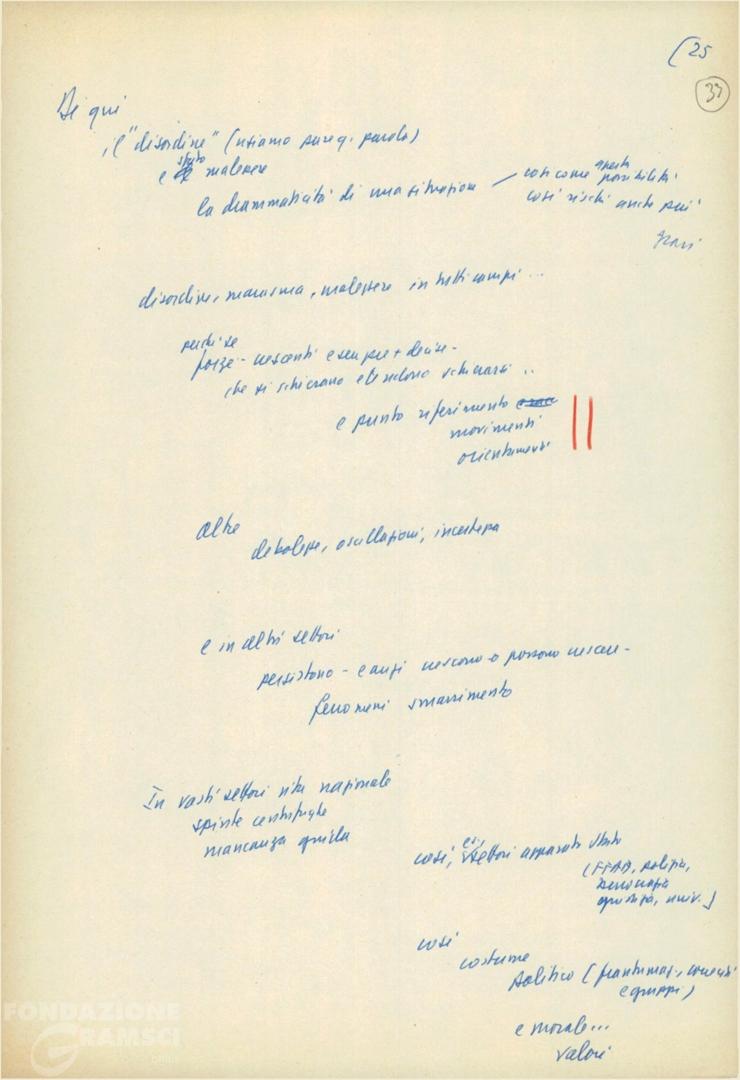 (25
33
Di qui
il "disordine" (usiamo pure q. parola)
e stato malessere
la drammaticità di una situazione — così come questa possibilità
così rischi anche più
gravi
disordine, marasma, malessere in tutti campi ...
perché se
forze - crescenti e sempre + decise -
che si schierano e tendono schierarsi ..
e punto riferimento
movimenti
orientamenti
altre
debolezze, oscillazioni, incertezza
e in altri settori
persistono - e anzi crescono o possono crescere -
fenomeni smarrimento
In vasti settori vita nazionale
spinte centrifughe
mancanza guida
così, es., settori apparato Stato
(FFAA, polizia,
burocrazia
giustizia, univ.)
così
costume
politico (frantumaz., correnti
e gruppi)
e morale...
valori
FONDAZIONE
GRAMSCI